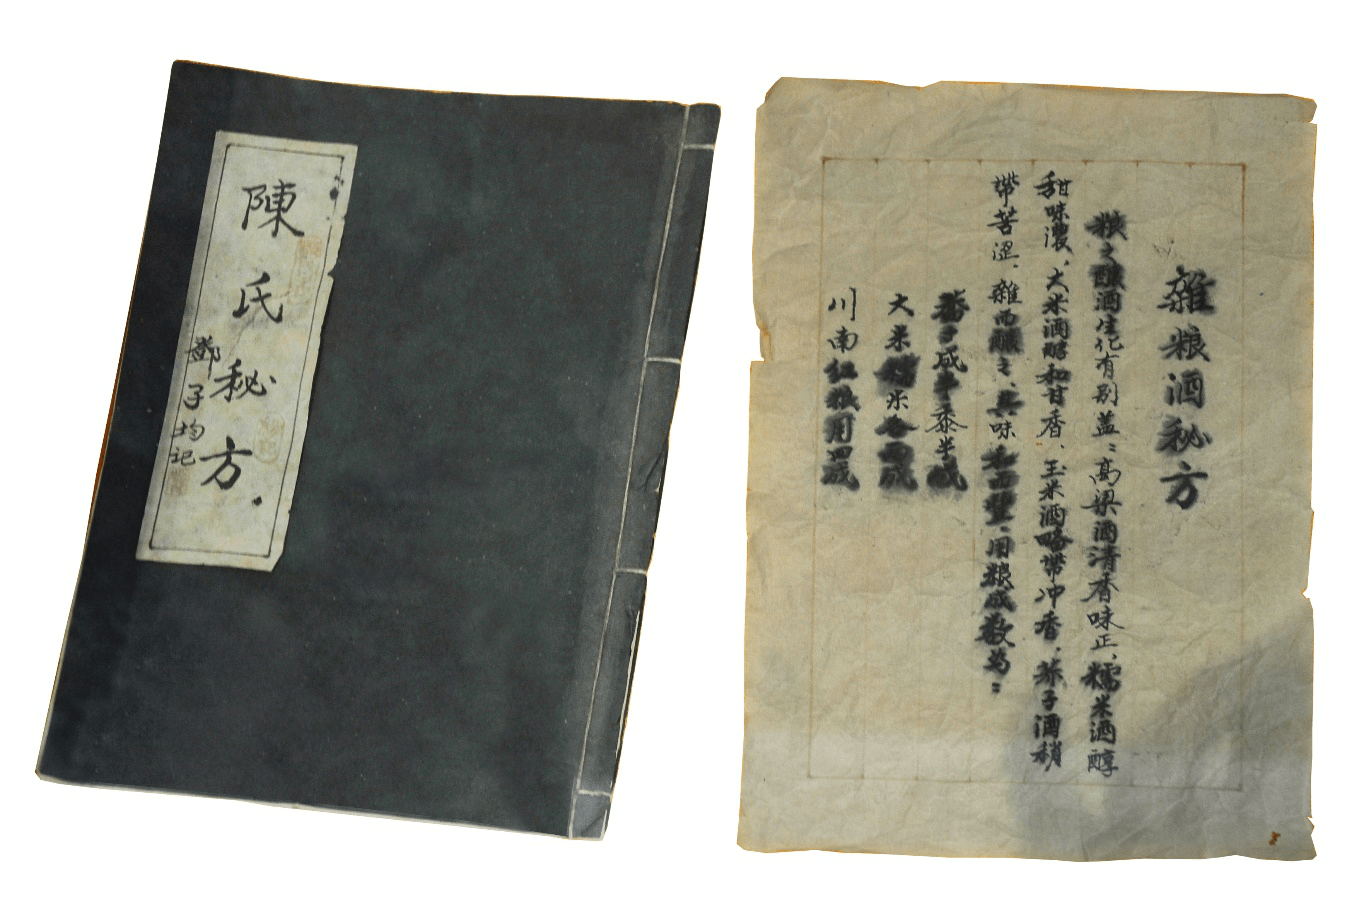 陳氏秘方
鄧子均记
雜粮酒秘方
粮之釀酒生化有别盖：高梁酒清香味正、糯米酒醇
甜味濃、大米酒和甘香、玉米酒略帶冲香、荞子酒稍
帶苦涩、雜而釀之、其味而豐、用粮成数为：
荞子成半黍半成
大米糯米各两成
川南红粮用四成